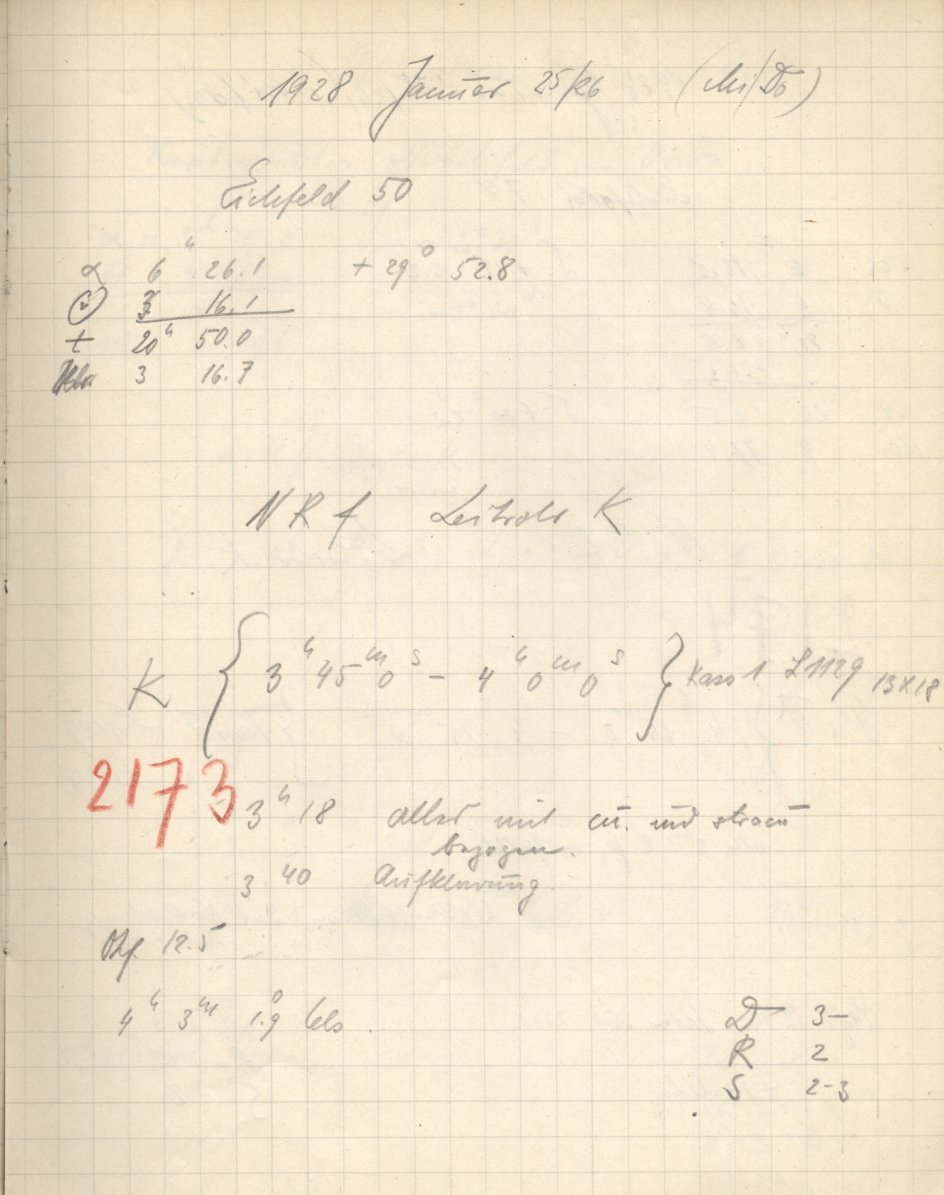 1928 Januar 25/26 (Mi/Do)
Eichfeld 50
α 6ʰ 26.1 + 29° 52.8
3 16.1
t 20ʰ 50.0
3 16.7
N R f Leitrohr K
K { 3ʰ 45ᵐ 0ˢ – 4ʰ 0ᵐ 0ˢ } Kass 1 13x18
2173
3ʰ 18 alles mit cu. und stracu
bezogen.
3 40 Aufklarung.
12.5
4ʰ 3ᵐ 1.9° Cels.
D 3–
R 2
S 2-3